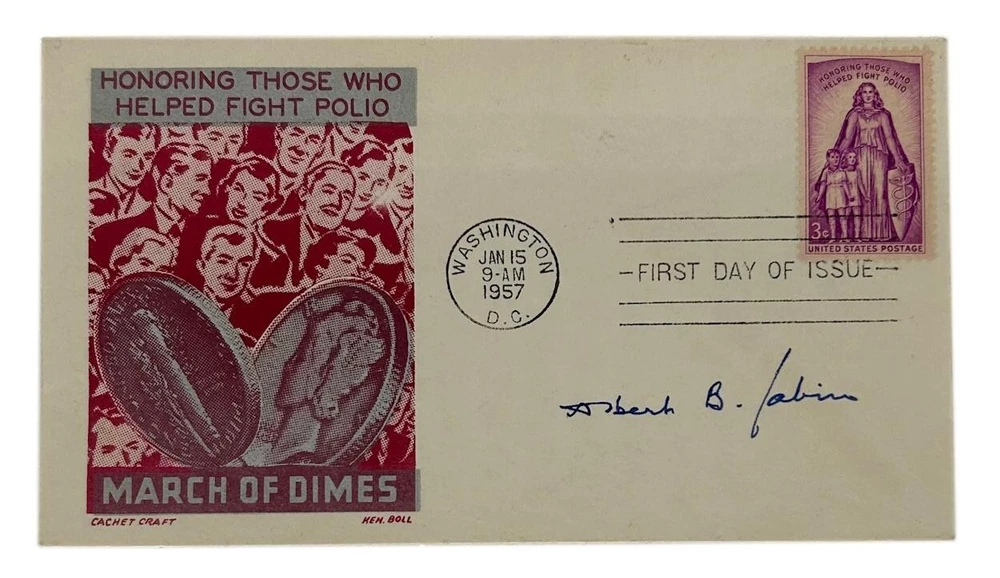 HONORING THOSE WHO
HELPED FIGHT POLIO
MARCH OF DIMES
CACHET CRAFT
KEN. BOLL
WASHINGTON
JAN 15
9-AM
1957
D.C.
HONORING THOSE WHO
HELPED FIGHT POLIO
3¢
UNITED STATES POSTAGE
FIRST DAY OF ISSUE
Albert B. Sabin